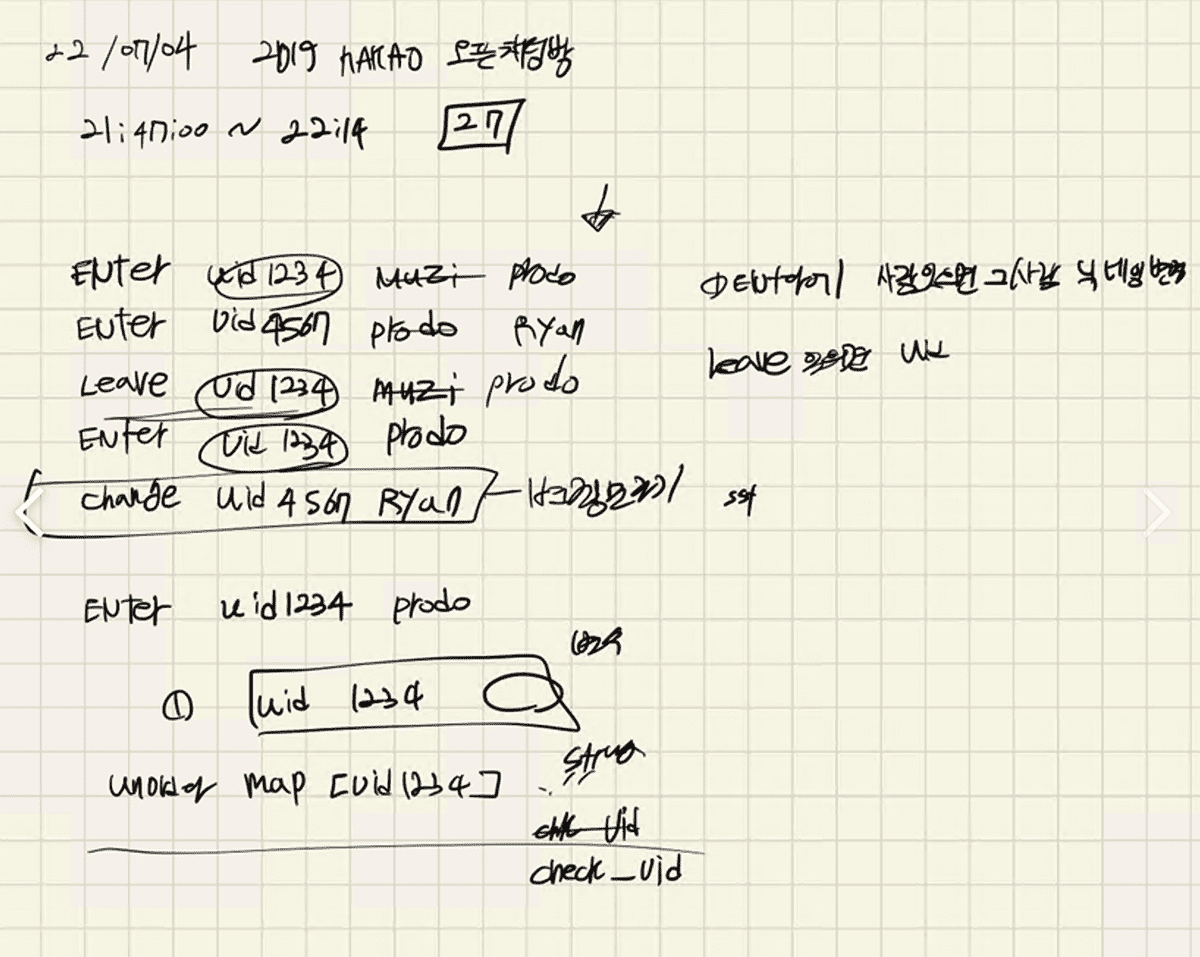 22/07/04 2019 KAKAO 오픈채팅방
21:47:00 ~ 22:14 27
Enter uid1234 Muzi prodo
Enter uid4567 prodo Ryan
Leave uid1234 Muzi prodo
Enter uid1234 prodo
change uid4567 Ryan
사람있으면 그사람 닉네임변경
leave
Enter uid1234 prodo
변경
① uid 1234
map [uid1234]
chk uid
check_uid